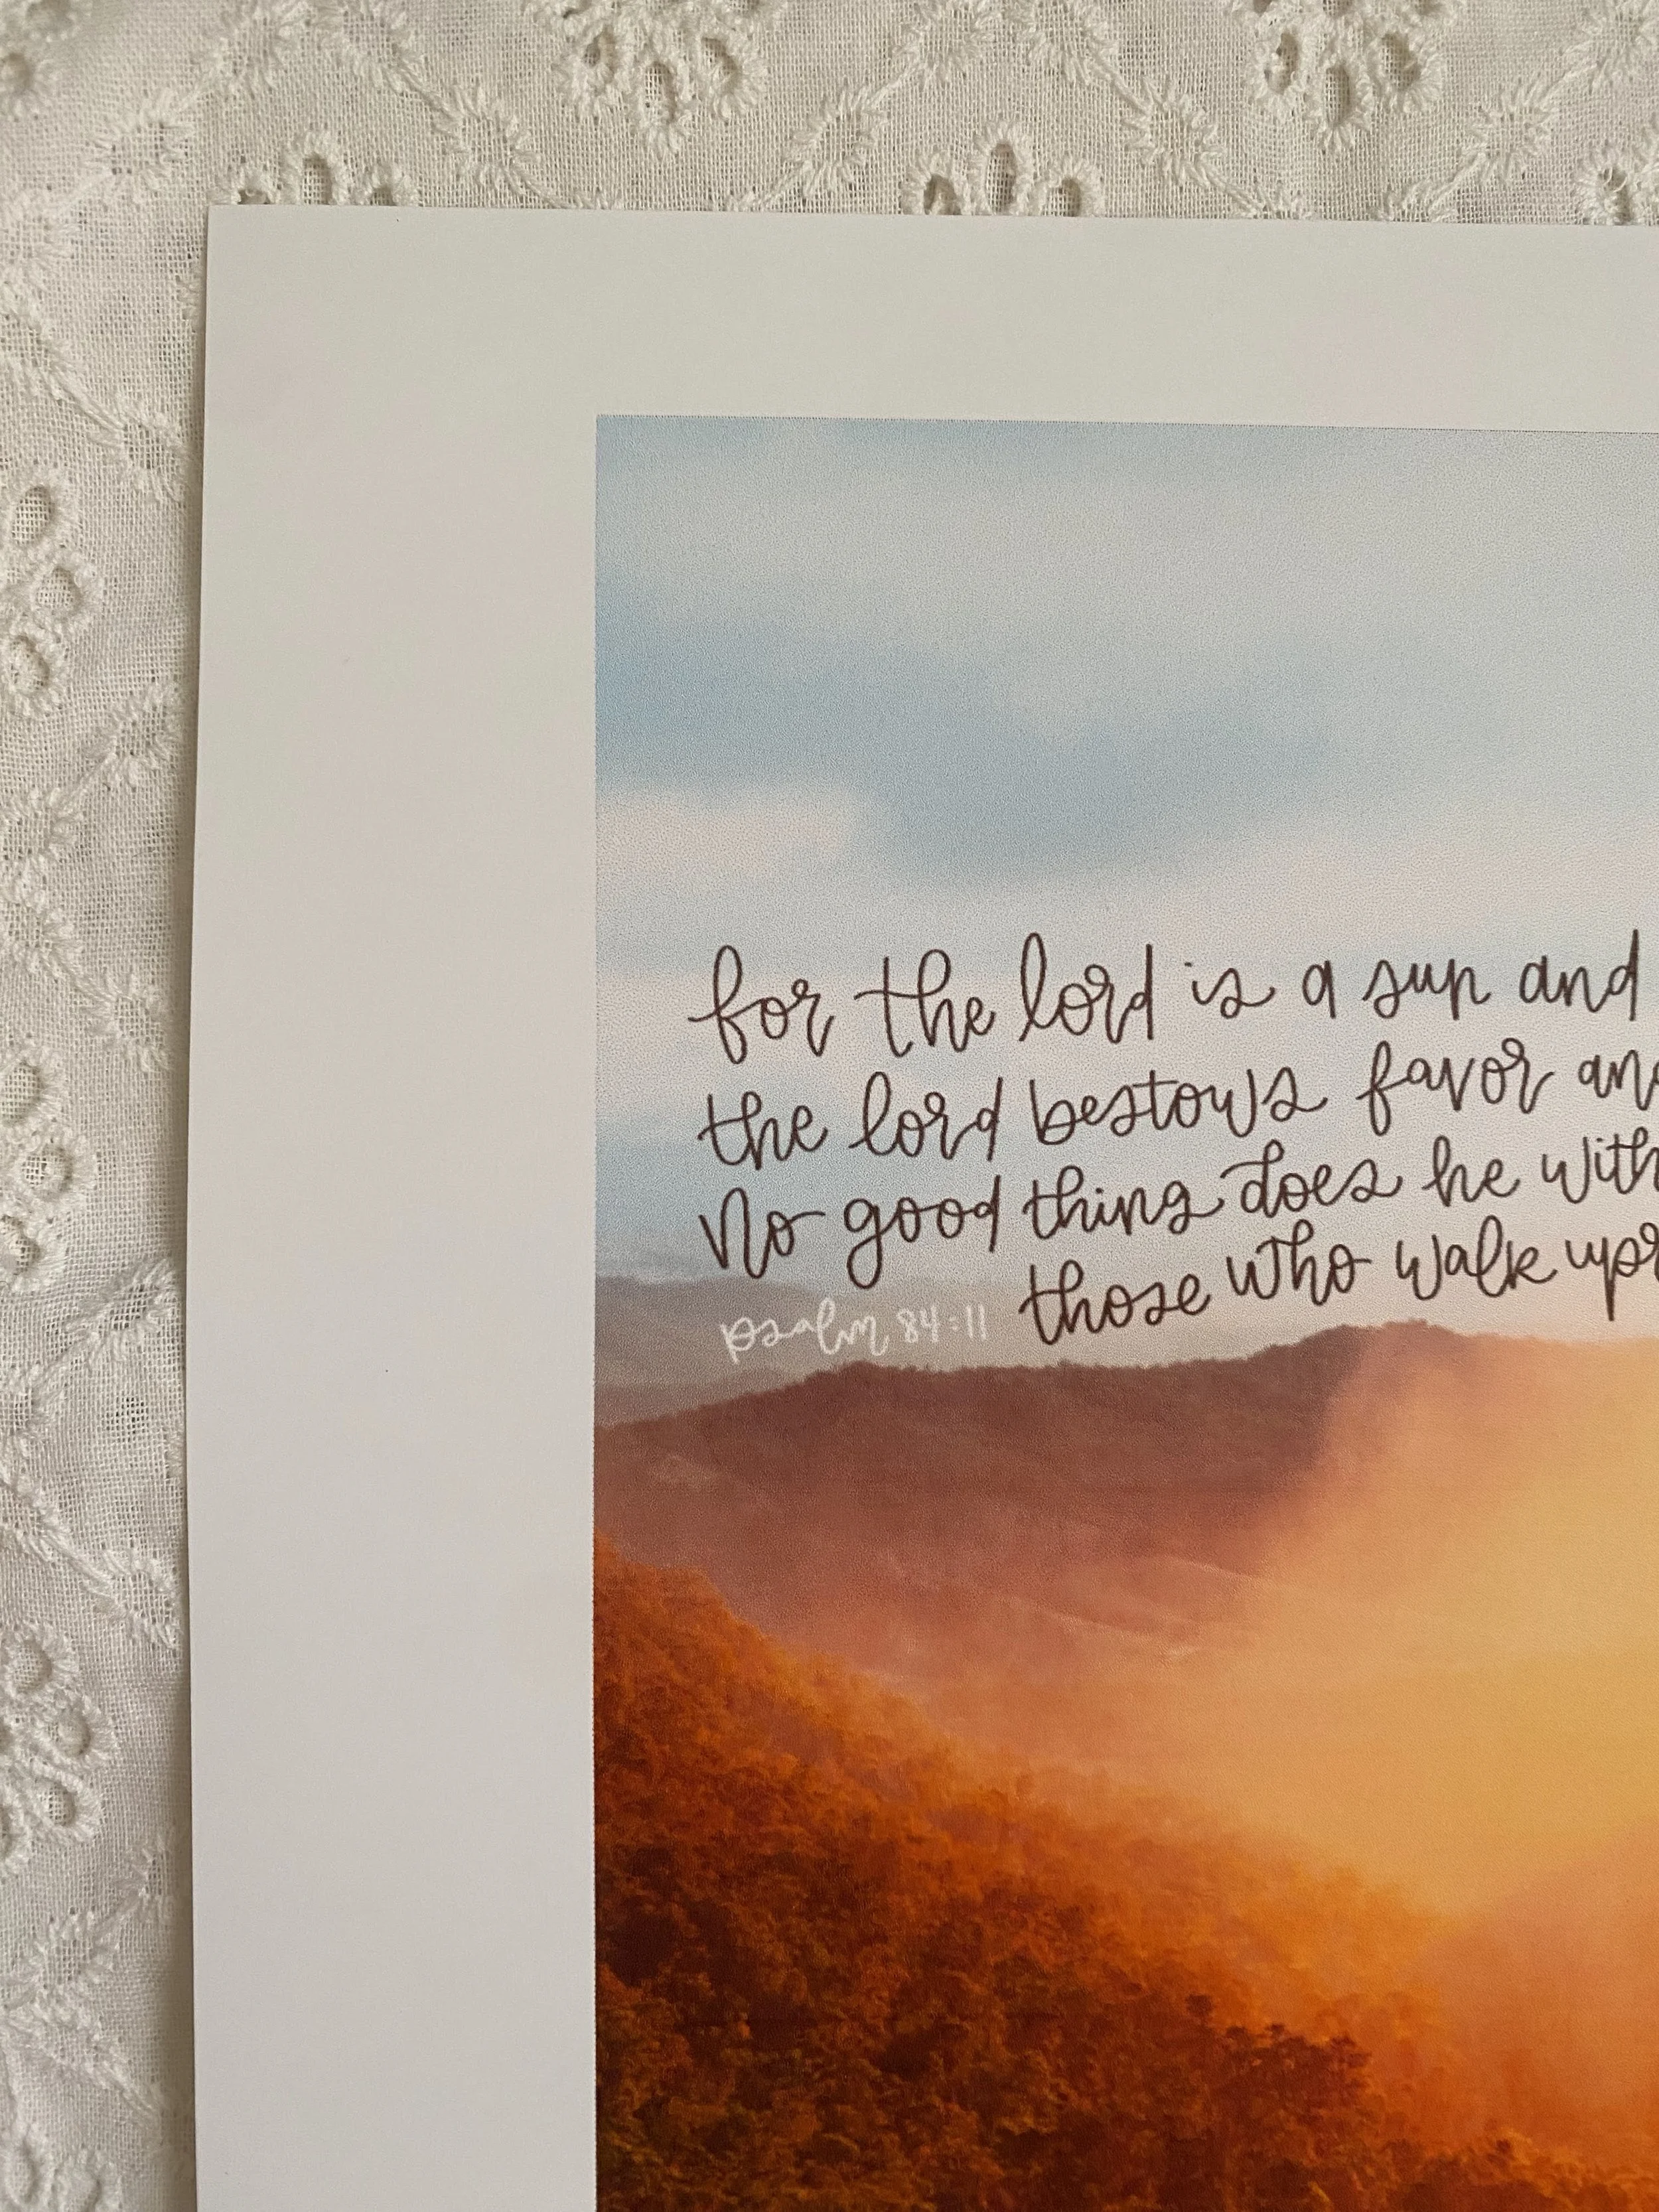 for the lord is a sun and
the lord bestows favor and
No good thing does he with
those who walk upr
psalm 84:11